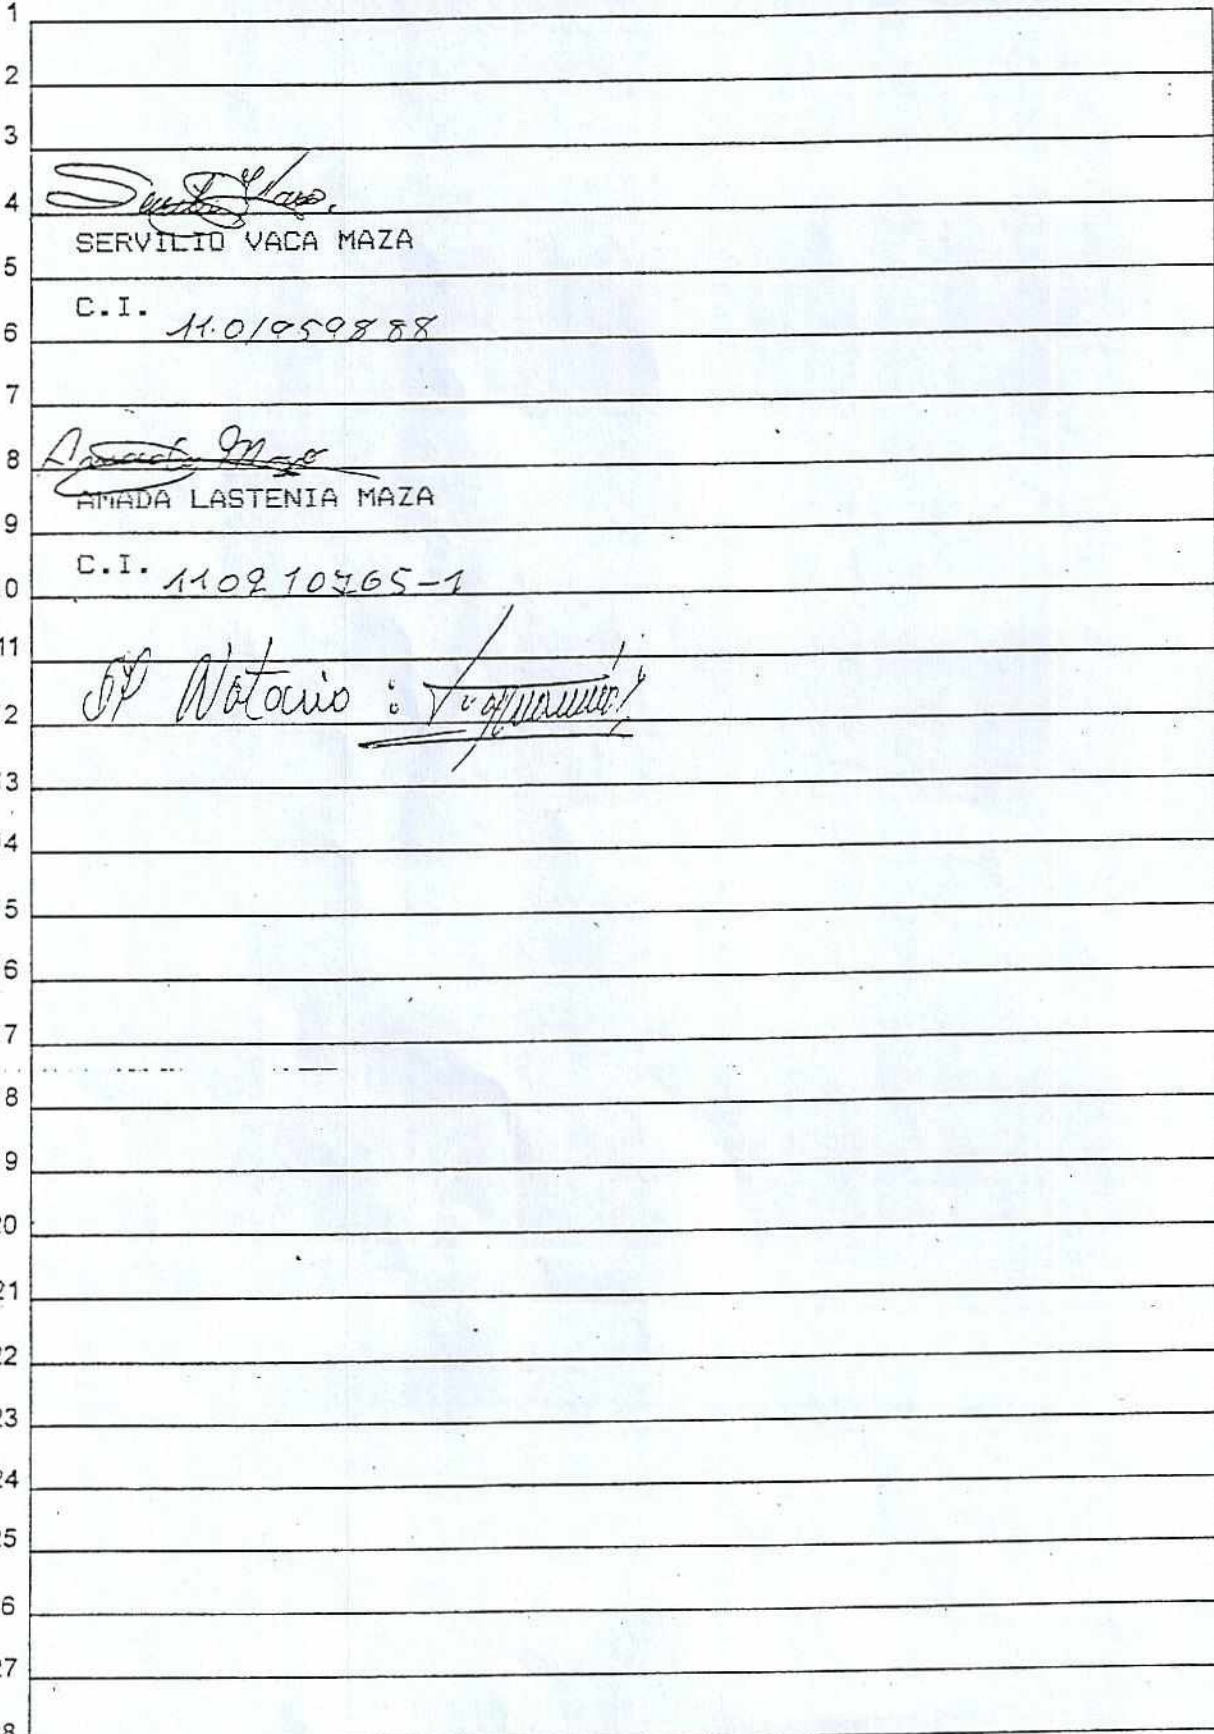 1
2
3
4
SERVILIO VACA MAZA
5
C.I. 11.01959888
6
7
Amada Maza
8
AMADA LASTENIA MAZA
9
C.I. 110210765-1
0
11
Notario :
2
3
4
5
6
7
8
9
20
21
22
23
24
25
6
27
8